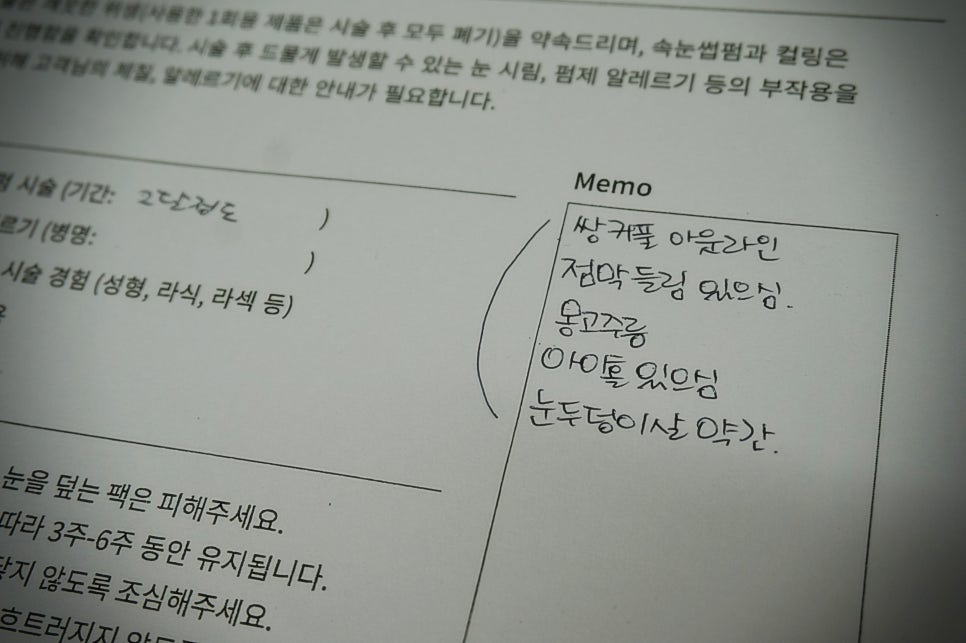 깨끗한 위생(사용한 1회용 제품은 시술 후 모두 폐기)을 약속드리며, 속눈썹펌과 컬링은
진행함을 확인합니다. 시술 후 드물게 발생할 수 있는 눈 시림, 펌제 알레르기 등의 부작용을
고객님의 체질, 알레르기에 대한 안내가 필요합니다.
펌 시술 (기간: 2달정도 )
르기 (병명: )
시술 경험 (성형, 라식, 라섹 등)
Memo
쌍커풀 아웃라인
점막들림 있으심.
몽고주름
아이홀 있으심
눈두덩이살 약간.
눈을 덮는 팩은 피해주세요.
따라 3주-6주 동안 유지됩니다.
닿지 않도록 조심해주세요.
흐트러지지 않도록